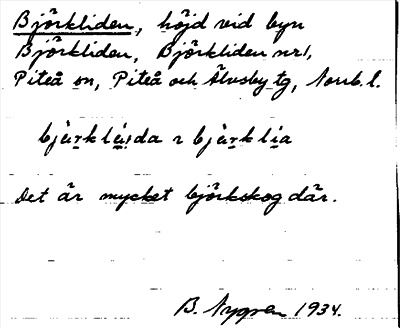 Björkliden, höjd vid byn
Björkliden, Björkliden nr 1,
Piteå sn, Piteå och Älvsby tg, Norrb. l.
Det är mycket björkskog där.
B. Nygren 1934.